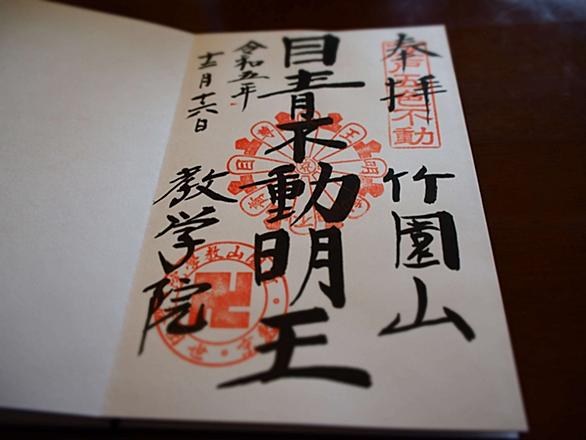 奉拝
五色不動
竹園山
目青不動明王
教学院
令和五年
十二月十六日